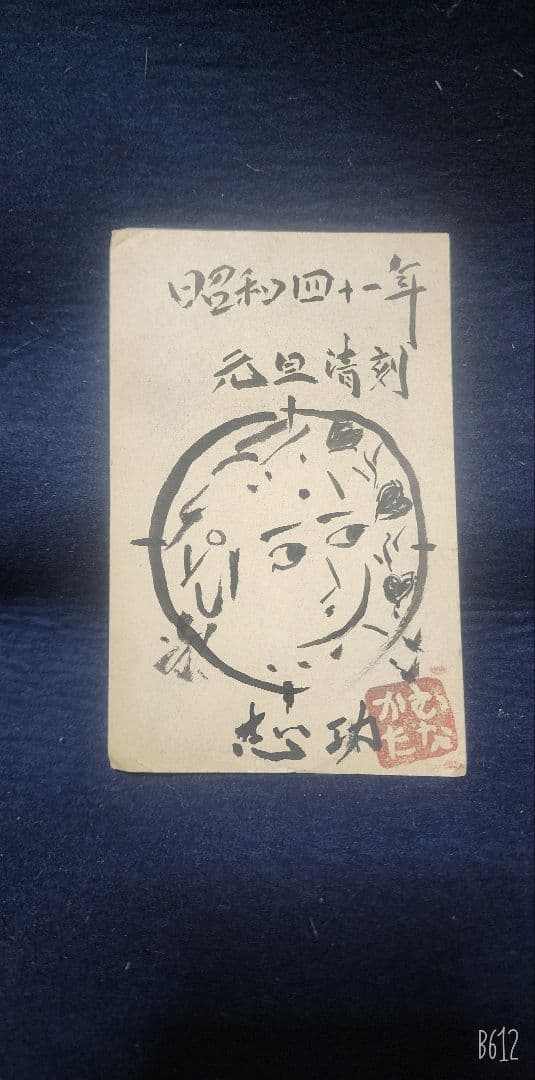 昭和四十一年
元旦清刻
志功
むなかた
B612